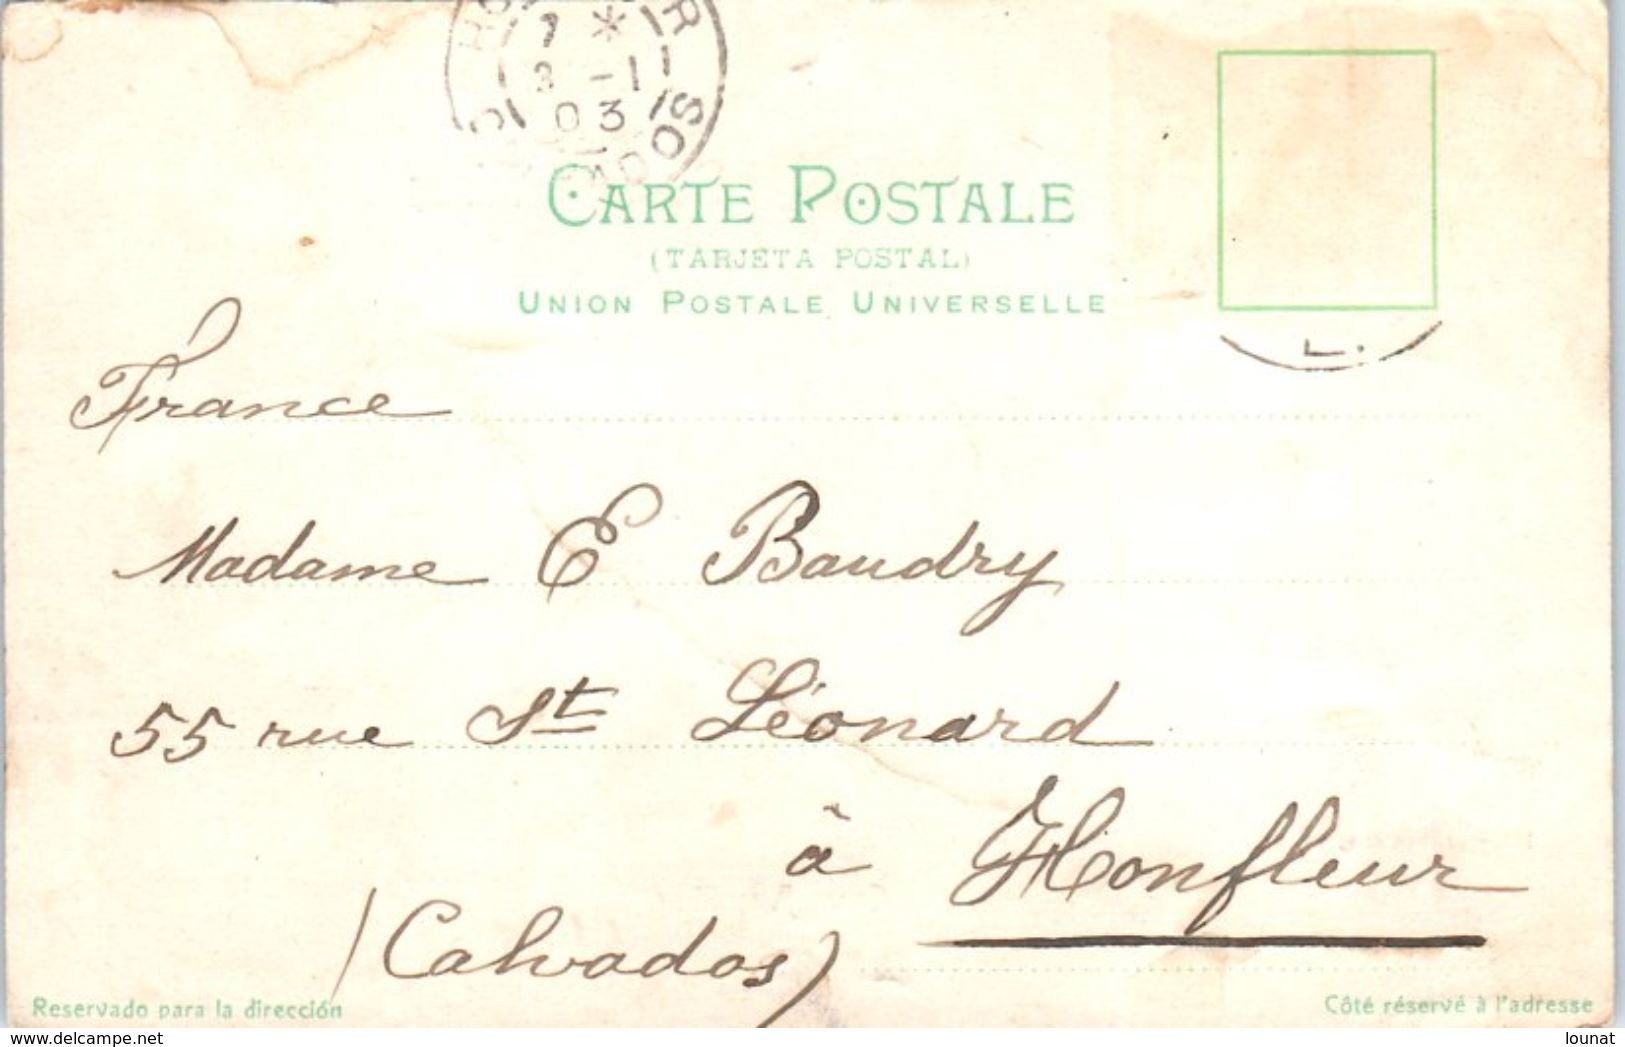 7 *
3 -11
03
CARTE POSTALE
(TARJETA POSTAL)
UNION POSTALE UNIVERSELLE
L.
France
Madame E Baudry
55 rue St Léonard
à Honfleur
(Calvados)
Reservado para la dirección
Côté réservé à l'adresse
www.delcampe.net
lounat